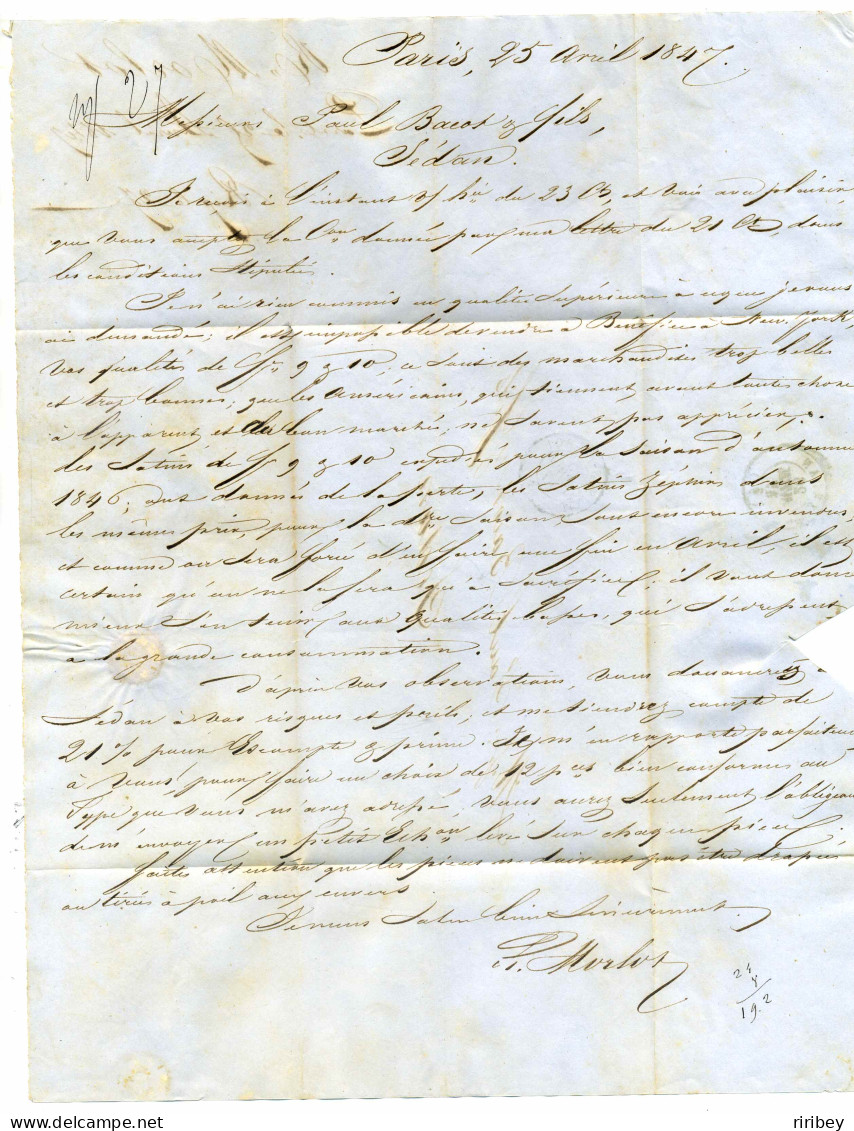 Paris, 25 Avril 1847.
Messieurs Paul Bacot & fils,
Sédan.
Je reçois à l'instant v/ h^re du 23 C^t, et vois avec plaisir
que vous acceptez la C^on donnée par ma lettre du 21 C^t, dans
les conditions stipulées.
Je n'ai rien commis en qualité supérieure à ce que je vous
ai demandé; il est impossible de vendre à Bénéfice à New-York,
vos qualités de f^rs 9 & 10, ce sont des marchandises trop belles
et trop bonnes, que les Américains, qui tiennent avant toute chose
à l'apparent, et du bon marché, ne savent pas apprécier.
les Satins de f^rs 9 & 10 expédiés pour la Saison d'automne
1846, ont donnés de la perte, les Satins Zéphirs dans
les mêmes prix, pour la d^re Saison, sont encore invendus,
et comme on sera forcé d'en faire une fin en Avril, il est
certain qu'on ne la fera qu'à sacrifice; il vaut donc
mieux s'en tenir aux qualités basses, qui s'adressent
à la grande consommation.
d'après vos observations, vous douanerez à
Sédan à vos risques et périls, et me tiendrez compte de
21 % pour Escompte & prime. Je m'en rapporte parfaitement
à vous, pour faire un choix de 12 p^ces bien conformes au
Type que vous m'avez adressé, vous aurez seulement l'obligeance
de m'envoyer un petit Ech^on levé sur chaque pièce.
faites attention que les pièces ne doivent pas être drapées
ou tirés à poil aux envers.
Je vous salue bien sincèrement.
P. Morlot
24
8
19.2
riribey